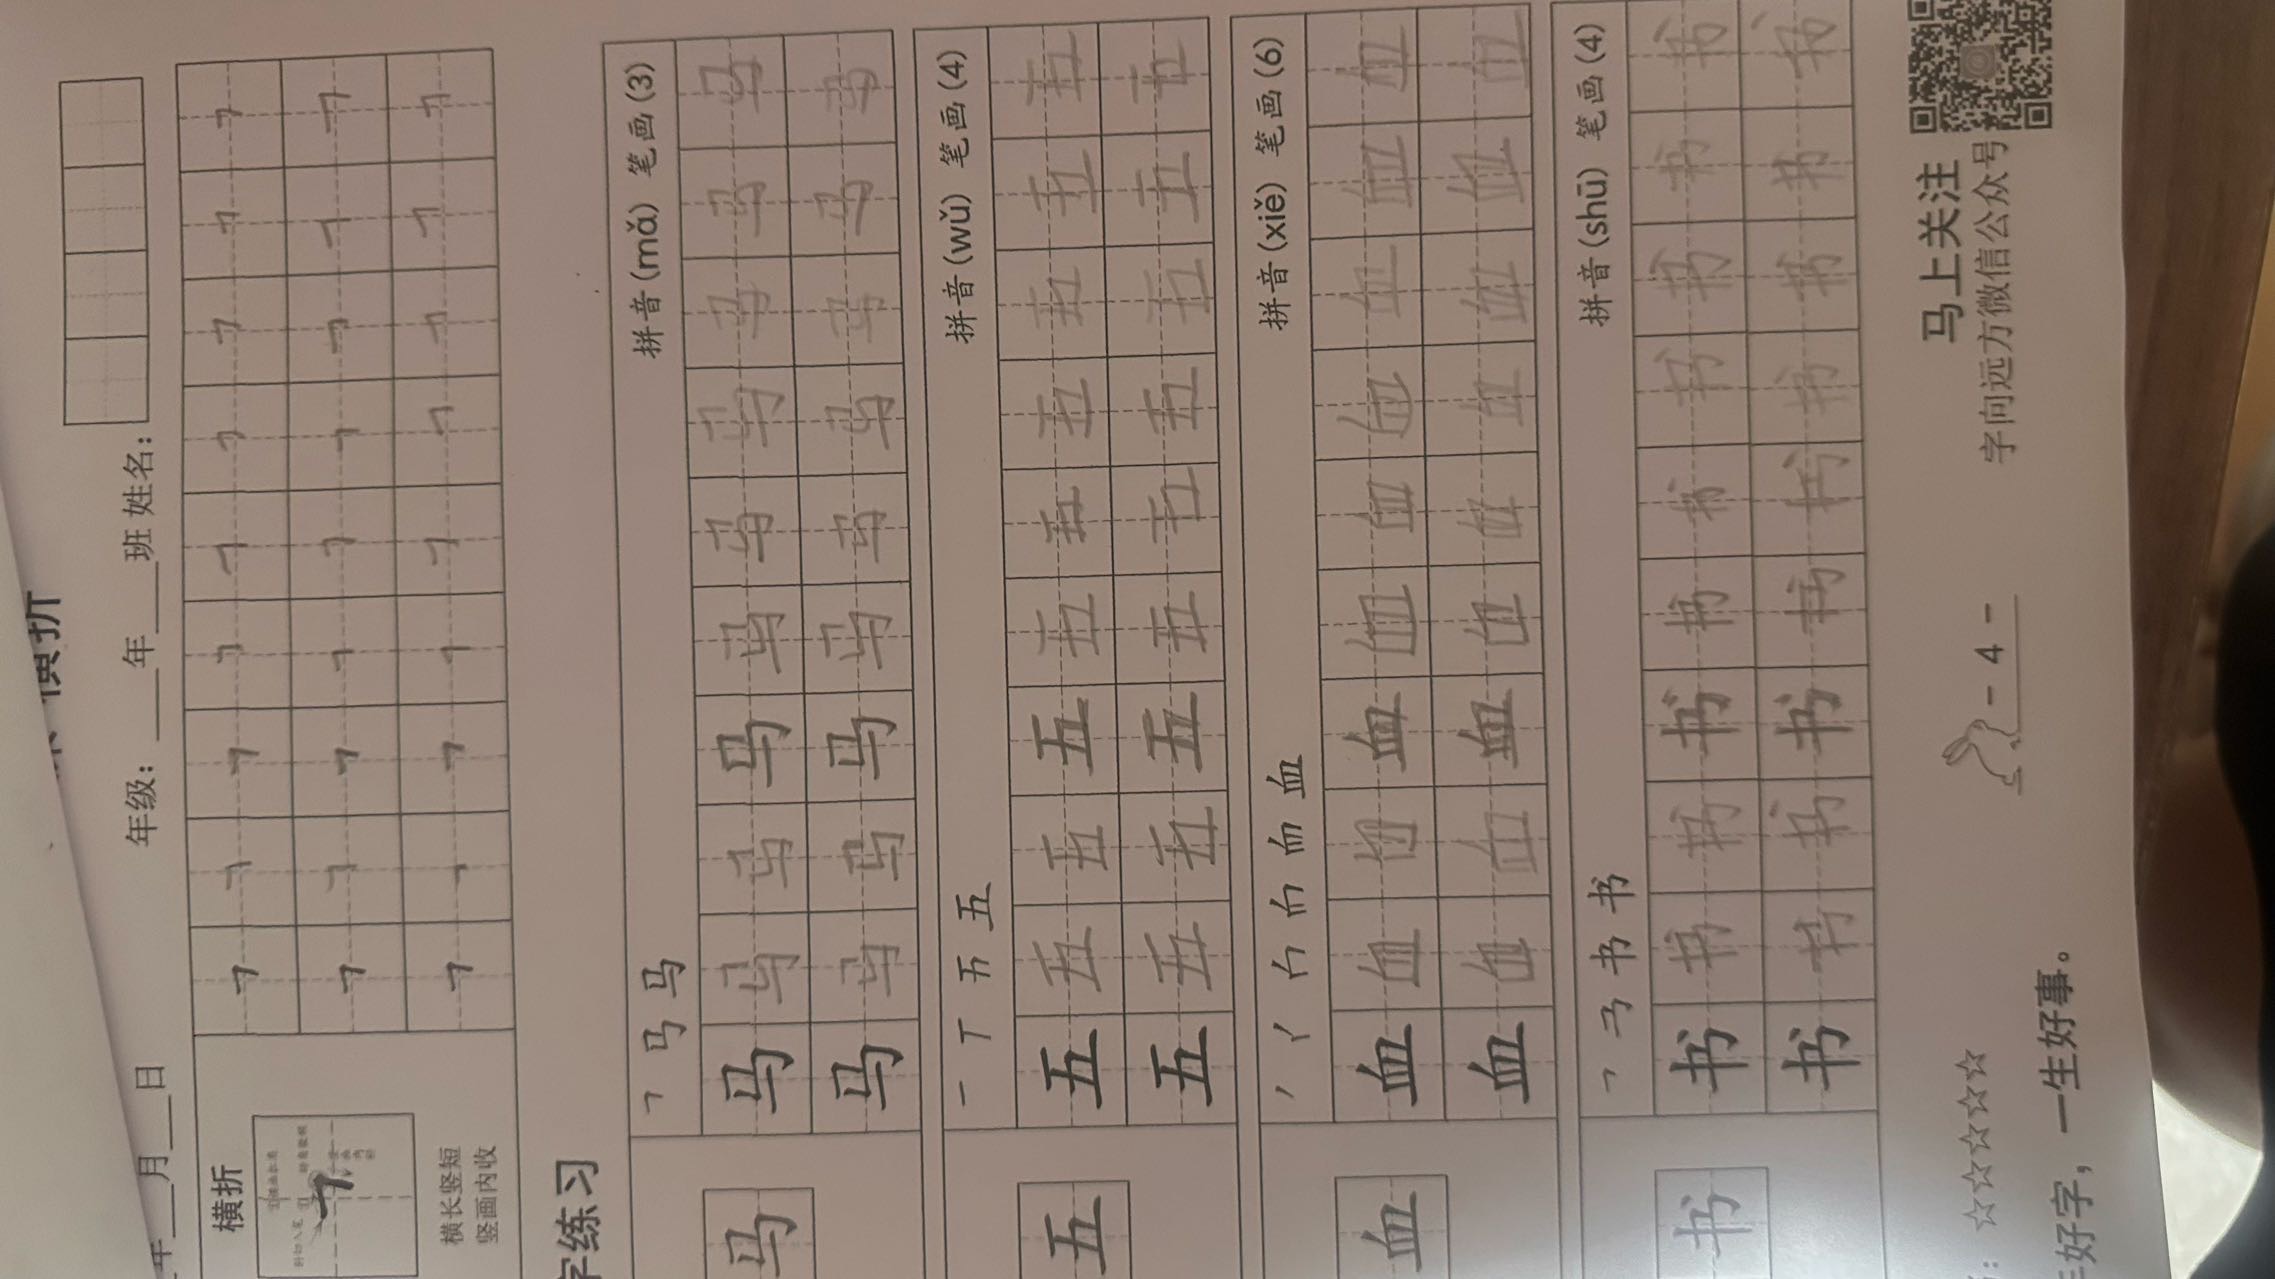 横折
年级：___年___班 姓名：
年___月___日
横折
㇕
横长竖短
竖画内收
㇕ ㇕ ㇕ ㇕ ㇕ ㇕ ㇕ ㇕ ㇕
㇕ ㇕ ㇕ ㇕ ㇕ ㇕ ㇕ ㇕ ㇕
㇕ ㇕ ㇕ ㇕ ㇕ ㇕ ㇕ ㇕
字练习
马
马 拼音(mǎ) 笔画(3)
马 马 马 马 马 马 马 马 马 马
马 马 马 马 马 马 马 马 马 马
五
一 丅 五 拼音(wǔ) 笔画(4)
五 五 五 五 五 五 五 五 五 五
五 五 五 五 五 五 五 五 五 五
血
丿 血 拼音(xiě) 笔画(6)
血 血 血 血 血 血 血 血 血
血 血 血 血 血 血 血 血 血 血
书
㇕ 书 书 拼音(shū) 笔画(4)
书 书 书 书 书 书 书 书 书 书
书 书 书 书 书 书 书 书 书 书
☆☆☆☆☆☆
- 4 -
马上关注
字向远方微信公众号
好字，一生好事。